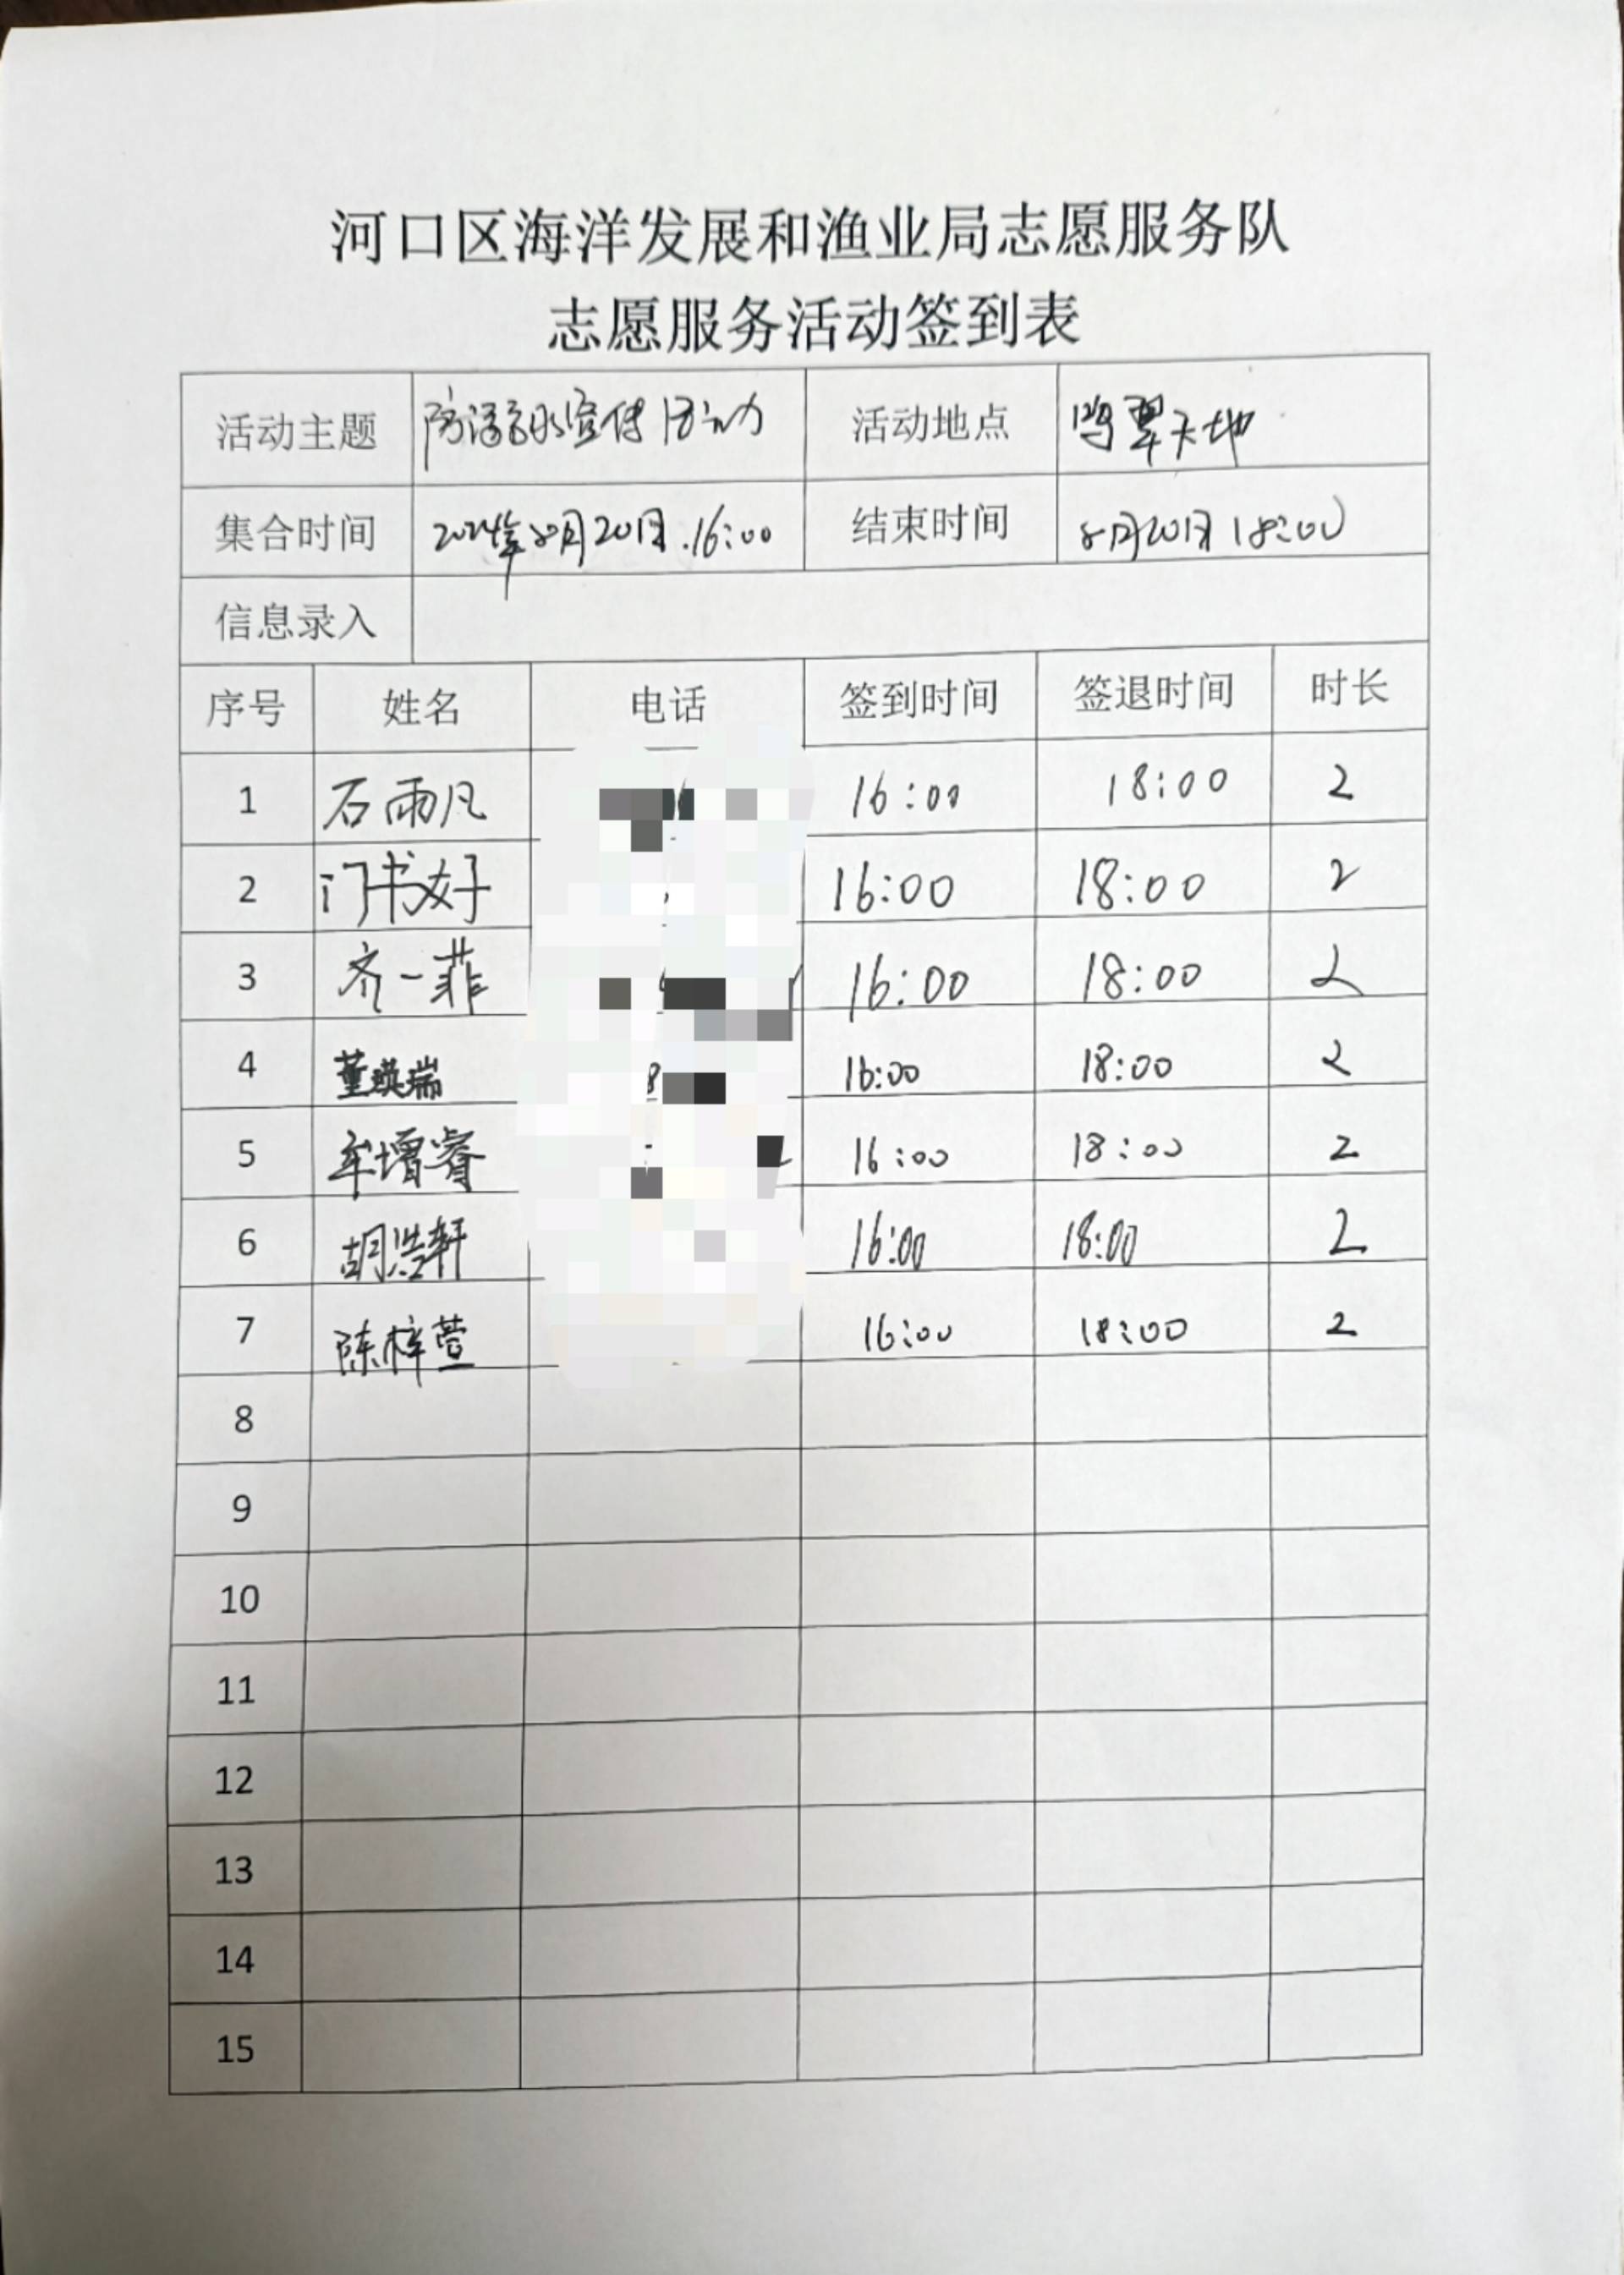 河口区海洋发展和渔业局志愿服务队
志愿服务活动签到表
活动主题 防溺水宣传活动 活动地点 鸣翠天地
集合时间 2024年8月20日.16:00 结束时间 8月20日 18:00
信息录入
序号 姓名 电话 签到时间 签退时间 时长
1 石雨凡 16:00 18:00 2
2 门书好 16:00 18:00 2
3 齐一菲 16:00 18:00 2
4 董瑛瑞 16:00 18:00 2
5 牟增睿 16:00 18:00 2
6 胡浩轩 16:00 18:00 2
7 陈梓萱 16:00 18:00 2
8
9
10
11
12
13
14
15